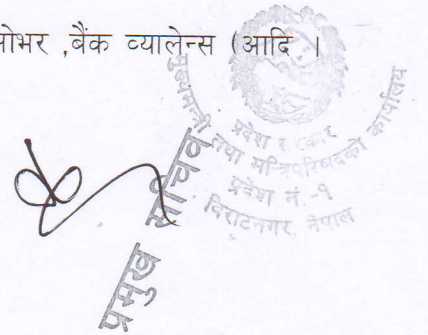 ोभर ,बैंक व्यालेन्स (आदि ।
मुख्यमन्त्री तथा मन्त्रिपरिषदको कार्यालय
प्रदेश सरकार
प्रदेश नं.-१
विराटनगर, नेपाल
प्रमुख सचिव